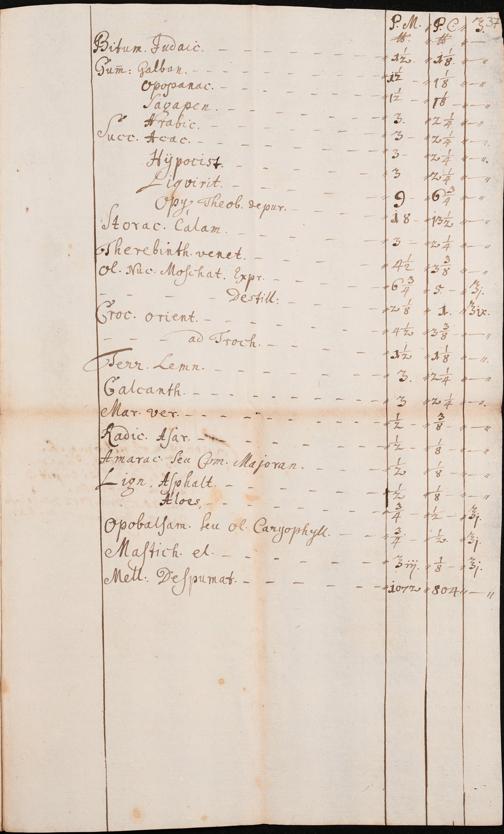 P. M. P. C. ʒ. 37
℔. ℔.
Bitum. Judaic. - - - - - - " 1½ " 1⅛ " "
Gum̄. Galban. - - - - - - " 1½ " 1⅛ " "
Opopanac. - - - - - " 1½ " 1⅛ " "
Sagapen. - - - - - "
Arabic. - - - - - " 3 " 2¼ " "
Succ. Acac. - - - - - - " 3 " 2¼ " "
Hÿpocist. - - - - - " 3 " 2¼ " "
Liquirit. - - - - - " 3 " 2¼ " "
Opy Theob. depur. - - - " 9 " 6¾ " "
Storac. Calam. - - - - - " 18 " 13½ " "
Therebinth. venet. - - - - " 3 " 2¼ " "
Ol. Nuc. Moschat. Expr. - - - " 4½ " 3⅜ " "
- - Destill: - - - " 6¾ " 5 " ℥j.
Croc. orient. - - - - - " 2⅛ " 1. " ℥ix.
- - ad Troch. - - - " 4½ " 3⅜ " "
Terr. Lemn. - - - - - " 1½ " 1⅛ " "
Calcanth. - - - - - " 3. " 2¼ " "
Mar. ver. - - - - - " 3 " 2¼ " "
Radic. Asar. - - - - - " ½ " ⅜ " "
Amarac. seu Com. Majoran. - - " ½ " ⅛ " "
Lign. Asphalt. - - - - " ½ " ⅛ " "
Aloes - - - - - " ½ " ⅛ " "
Opobalsam. seu ol. Caryophyll. - - " ¾ " ½ " ℥j.
Mastich. el. - - - - - " ¾ " ½ " ℥j.
Mell. Despumat. - - - - " 3iij. " ⅛ " ℥j.
" 1072 " 804 " "